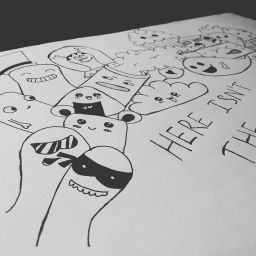 HERE ISN'T
THE